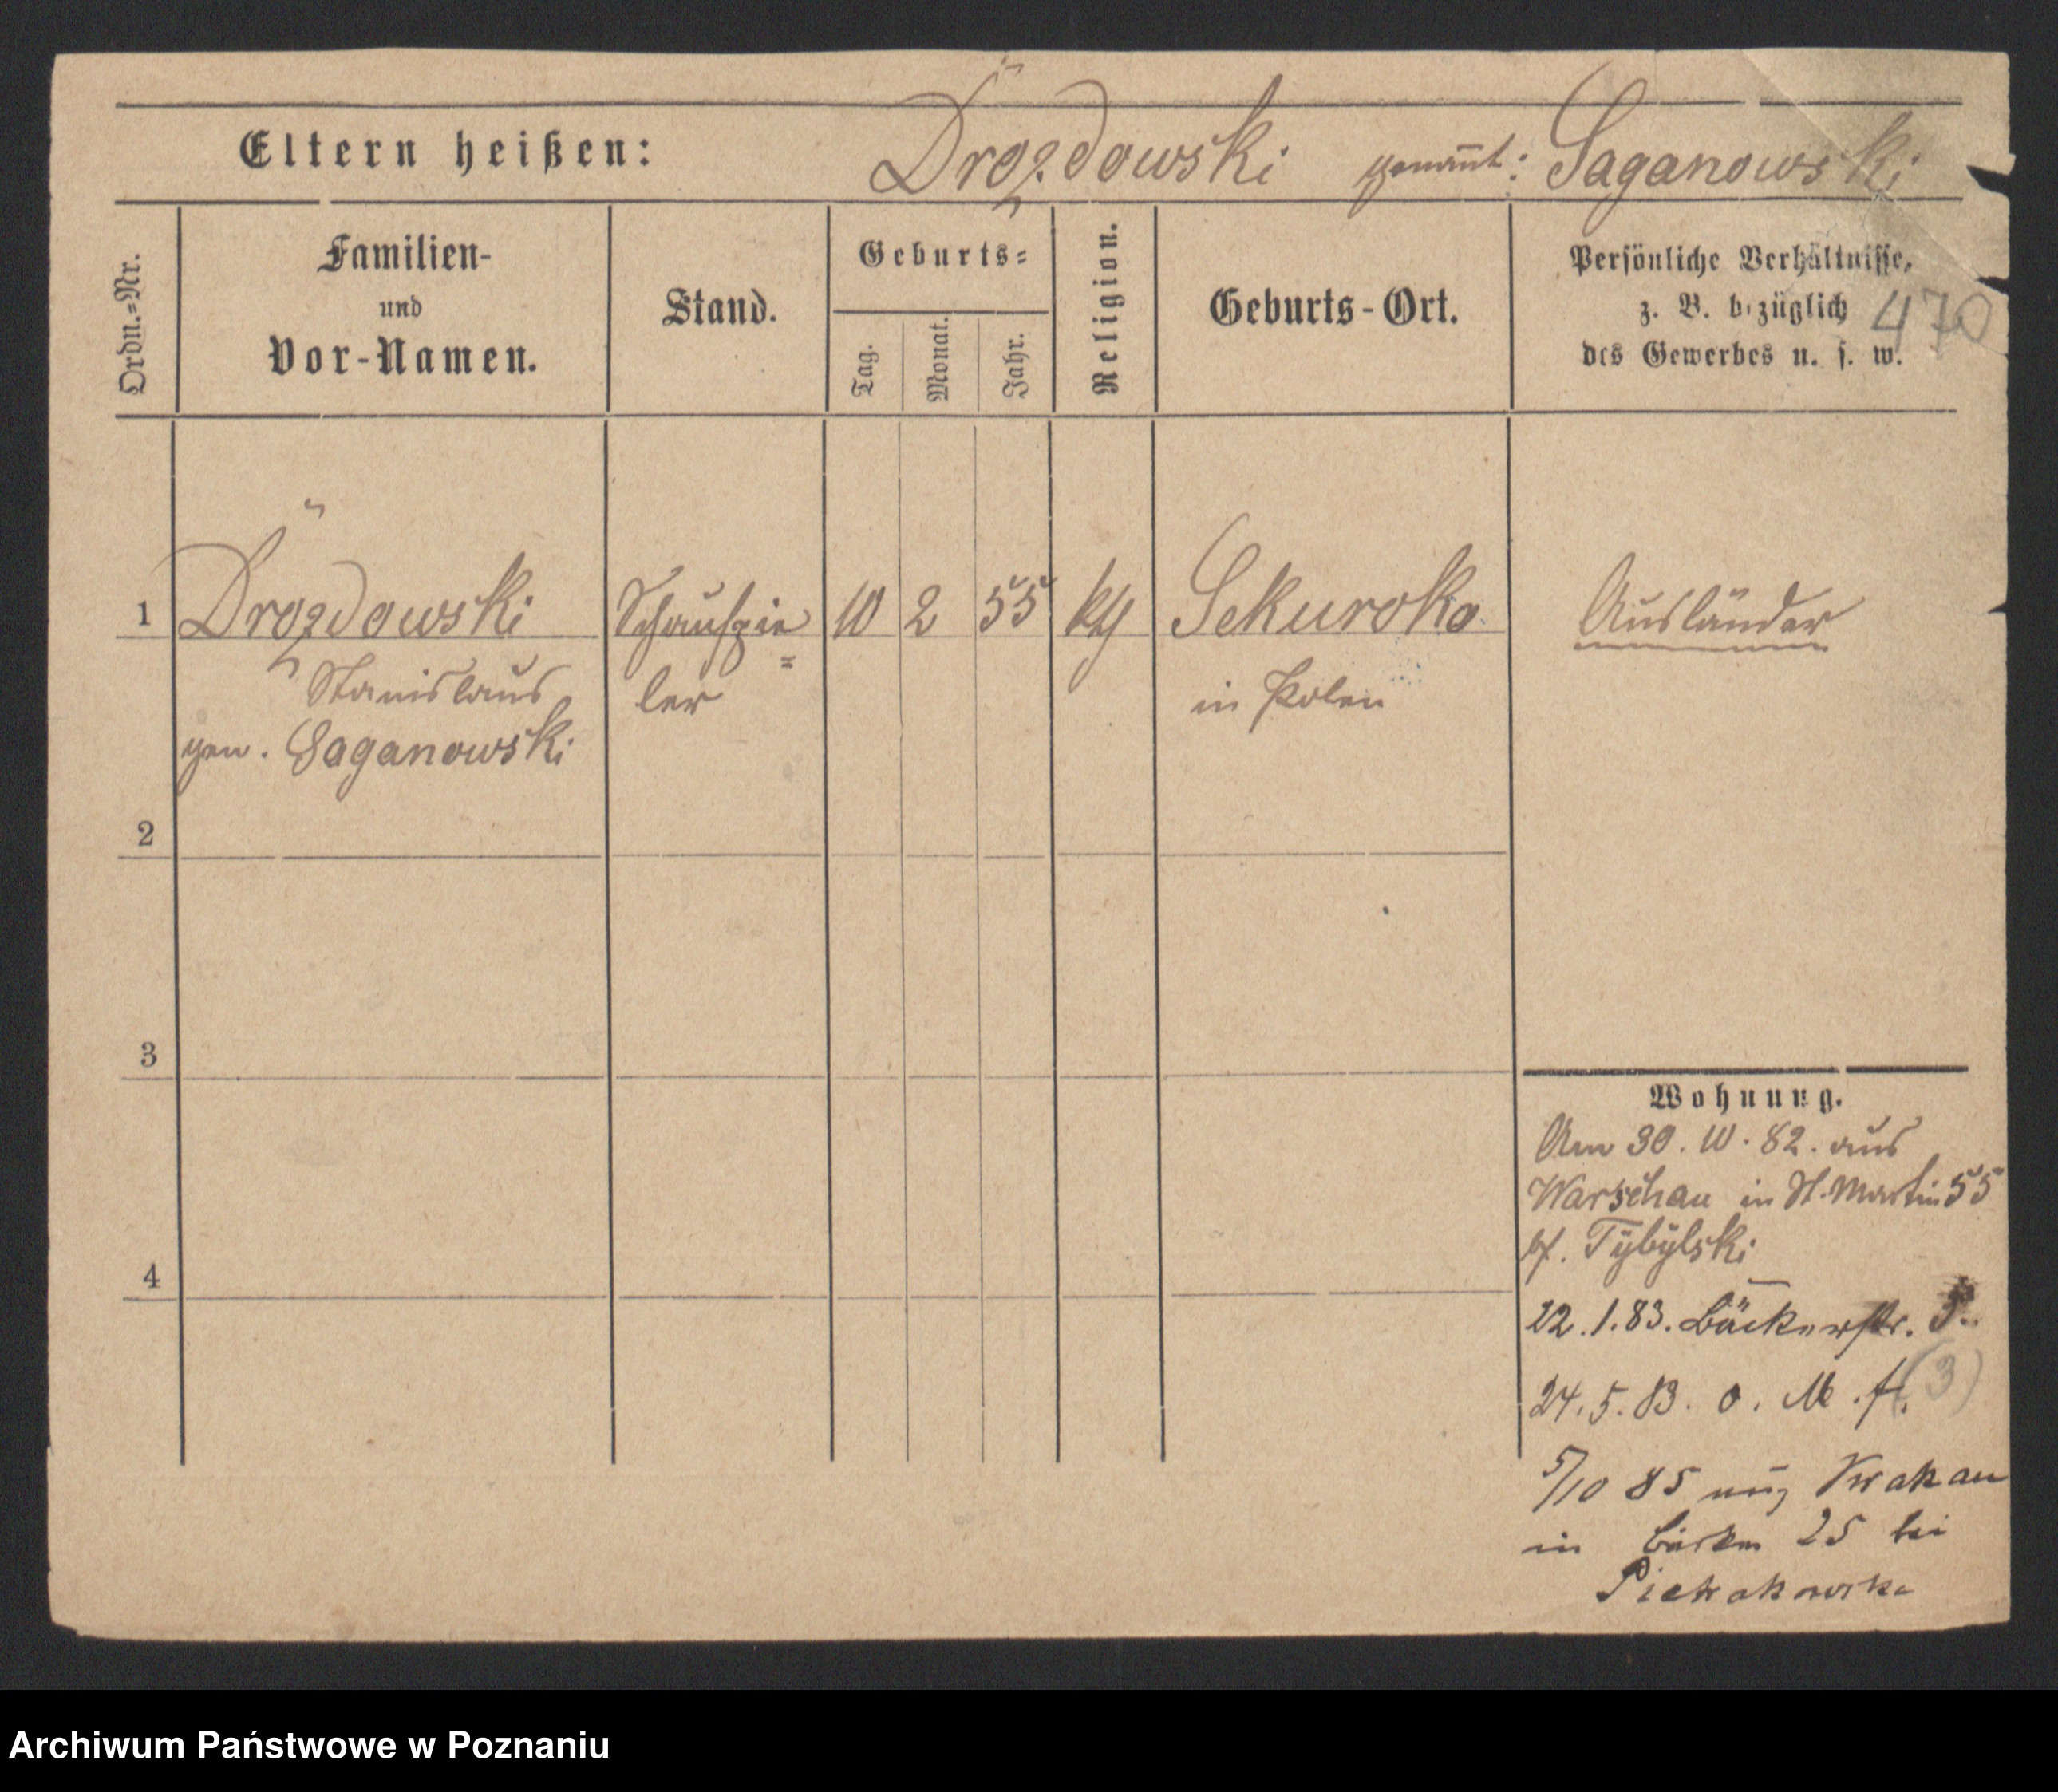 Eltern heißen: Drozdowski genannt: Saganowski
Ordn.=Nr.
Familien-
und
Vor-Namen.
Stand.
Geburts=
Tag.
Monat.
Jahr.
Religion.
Geburts-Ort.
Persönliche Verhältnisse,
z. B. bezüglich
des Gewerbes u. s. w.
470
1 Drozdowski Schauspie= 10 2 55 kth Sekuroko Ausländer
Stanislaus ler in Polen
gen. Saganowski
2
3
4
Wohnung.
Am 30. 10. 82. aus
Warschau in St. Martin 55
bf. Tybylski
22. 1. 83. Bäckerstr.
24. 5. 83. o. M. f. (3)
5/10 85 aus Krakau
in 25 bei
Archiwum Państwowe w Poznaniu